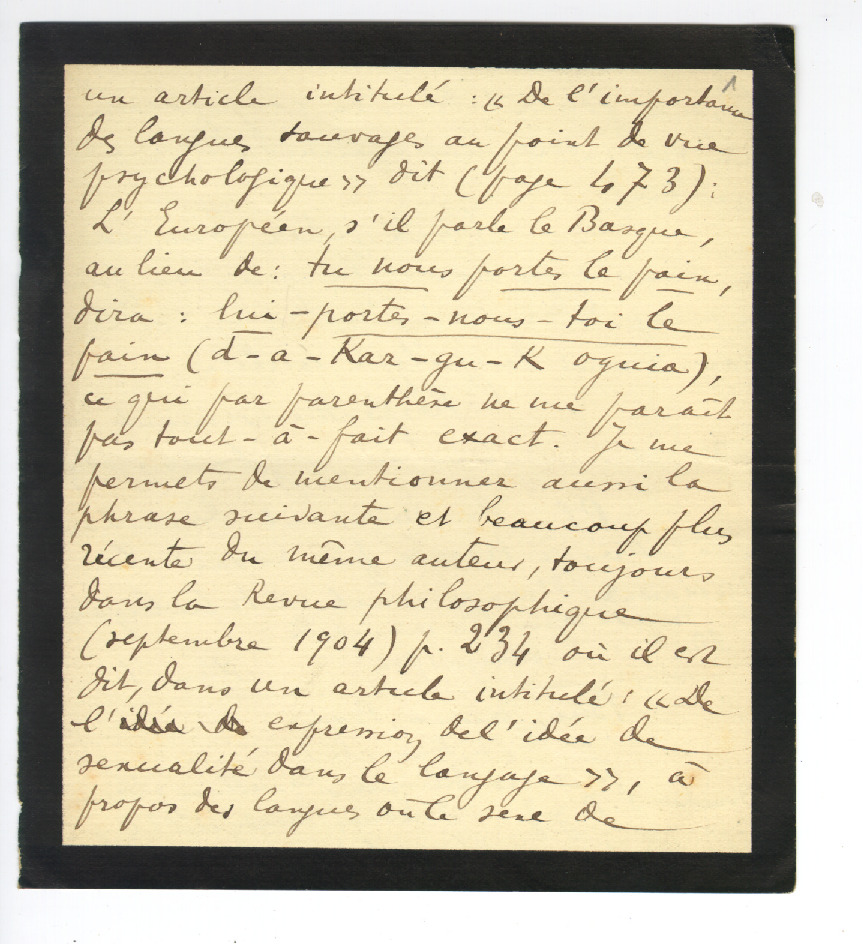 un article intitulé : « De l'importance
des langues sauvages au point de vue
psychologique » dit (page 473) :
L' Européen, s'il parle le Basque,
au lieu de : tu nous portes le pain,
dira : lui - portes - nous - toi le
pain (d - a - Kar - gu - K oguia),
ce qui par parenthèse ne me paraît
pas tout - à - fait exact. Je me
permets de mentionner aussi la
phrase suivante et beaucoup plus
récente du même auteur, toujours
dans la Revue philosophique
(septembre 1904) p. 234 où il est
dit, dans un article intitulé : « De
l'idée de expression de l'idée de
sexualité dans le langage », à
propos des langues où le sexe de